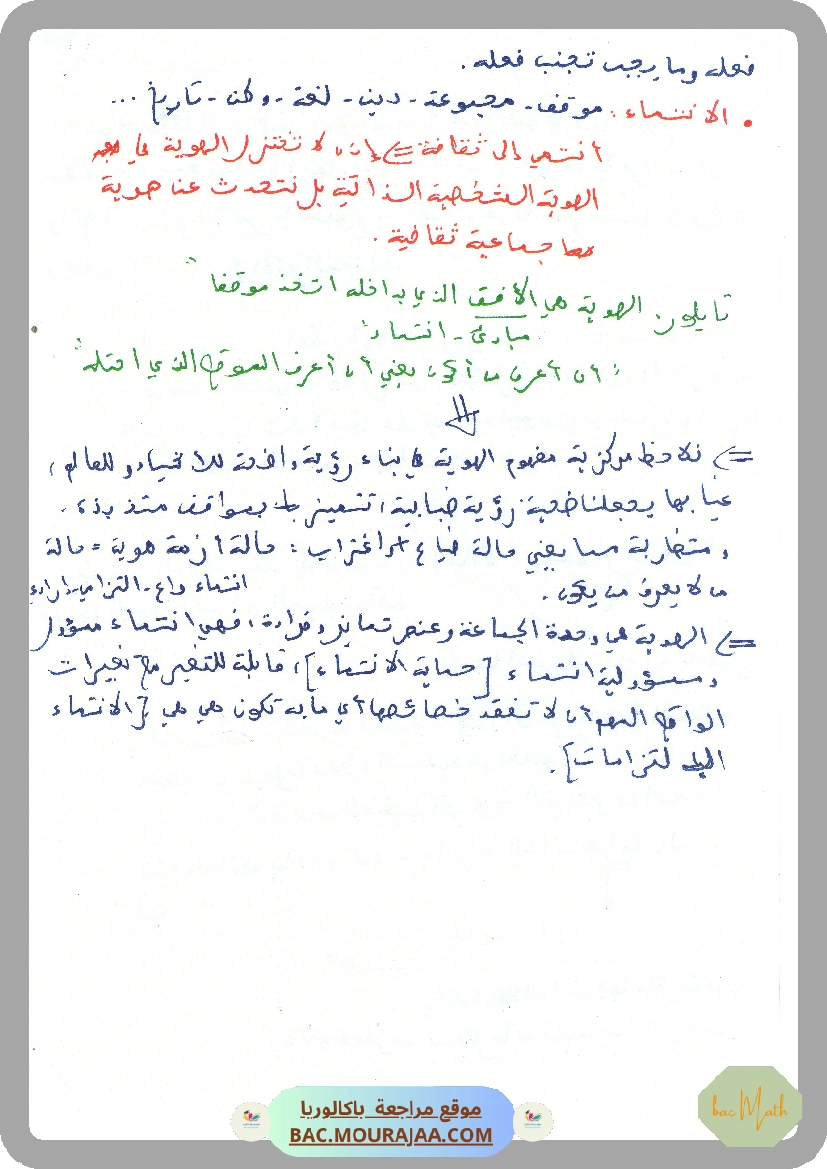 فعله وما يجب تجنب فعله.
• الانتماء: موقف - مجموعة - دين - لغة - وطن - تاريخ ...
أنتمي إلى ثقافة <= إذن لا تختزل الهوية في
الهوية الشخصية الذاتية بل نتحدث عن هوية
جماعية ثقافية.
تايلور: الهوية هي الأفق الذي بداخله اتخذ موقفا"
مبادئ - انتماء"
"أن أعرف من أكون يعني أن أعرف الموقع الذي احتله"
=> نلاحظ مركزية مفهوم الهوية في بناء رؤية واضحة للأشياء و للعالم،
غيابها يجعلنا ضحية رؤية ضبابية، تتميز بمواقف متذبذبة
ومتضاربة مما يعني حالة ضياع + اغتراب: حالة أزمة هوية = حالة
من لا يعرف من يكون. انتماء واع - التزامي - إرادي
=> الهوية هي وحدة الجماعة وعنصر تمايز وفرادة، فهي انتماء مسؤول
ومسؤولية انتماء [حماية الانتماء]، قابلة للتغير مع تغيرات
الواقع المهم أن لا تفقد خصائصها أي ما به تكون هي هي [الانتماء
لتزامات].
موقع مراجعة باكالوريا
BAC.MOURAJAA.COM
bac Math